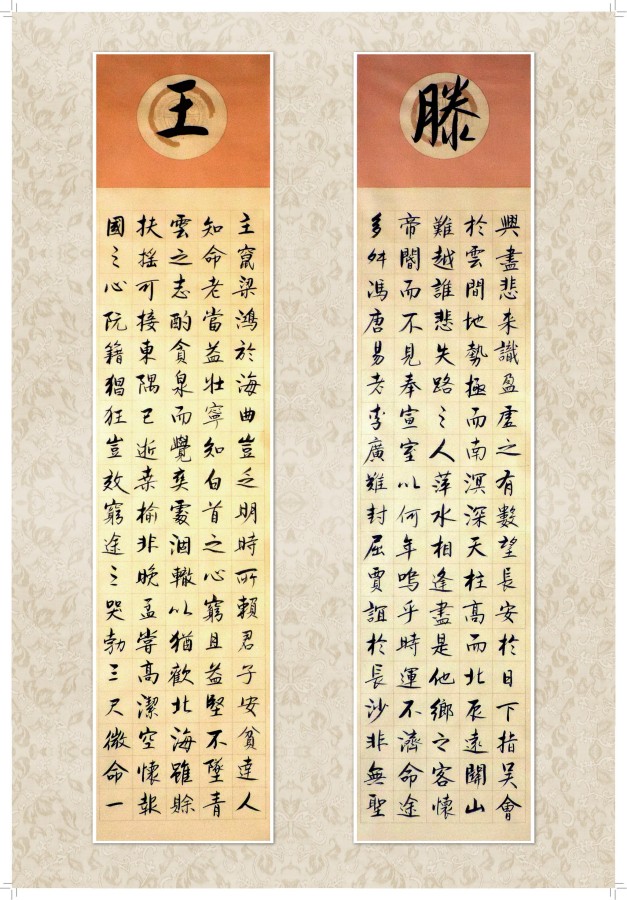 滕
興盡悲来識盈虚之有數望長安於日下指吴會
於雲間地勢極而南溟深天柱高而北辰遠關山
難越誰悲失路之人萍水相逢盡是他鄉之客懷
帝閽而不見奉宣室以何年嗚乎時運不濟命途
多舛馮唐易老李廣難封屈賈誼於長沙非無聖
王
主竄梁鴻於海曲豈乏明時所賴君子安貧達人
知命老當益壯寧知白首之心窮且益堅不墜青
雲之志酌貪泉而覺爽處涸轍以猶歡北海雖賒
扶摇可接東隅已逝桑榆非晚孟嘗高潔空懷報
國之心阮籍猖狂豈效窮途之哭勃三尺微命一